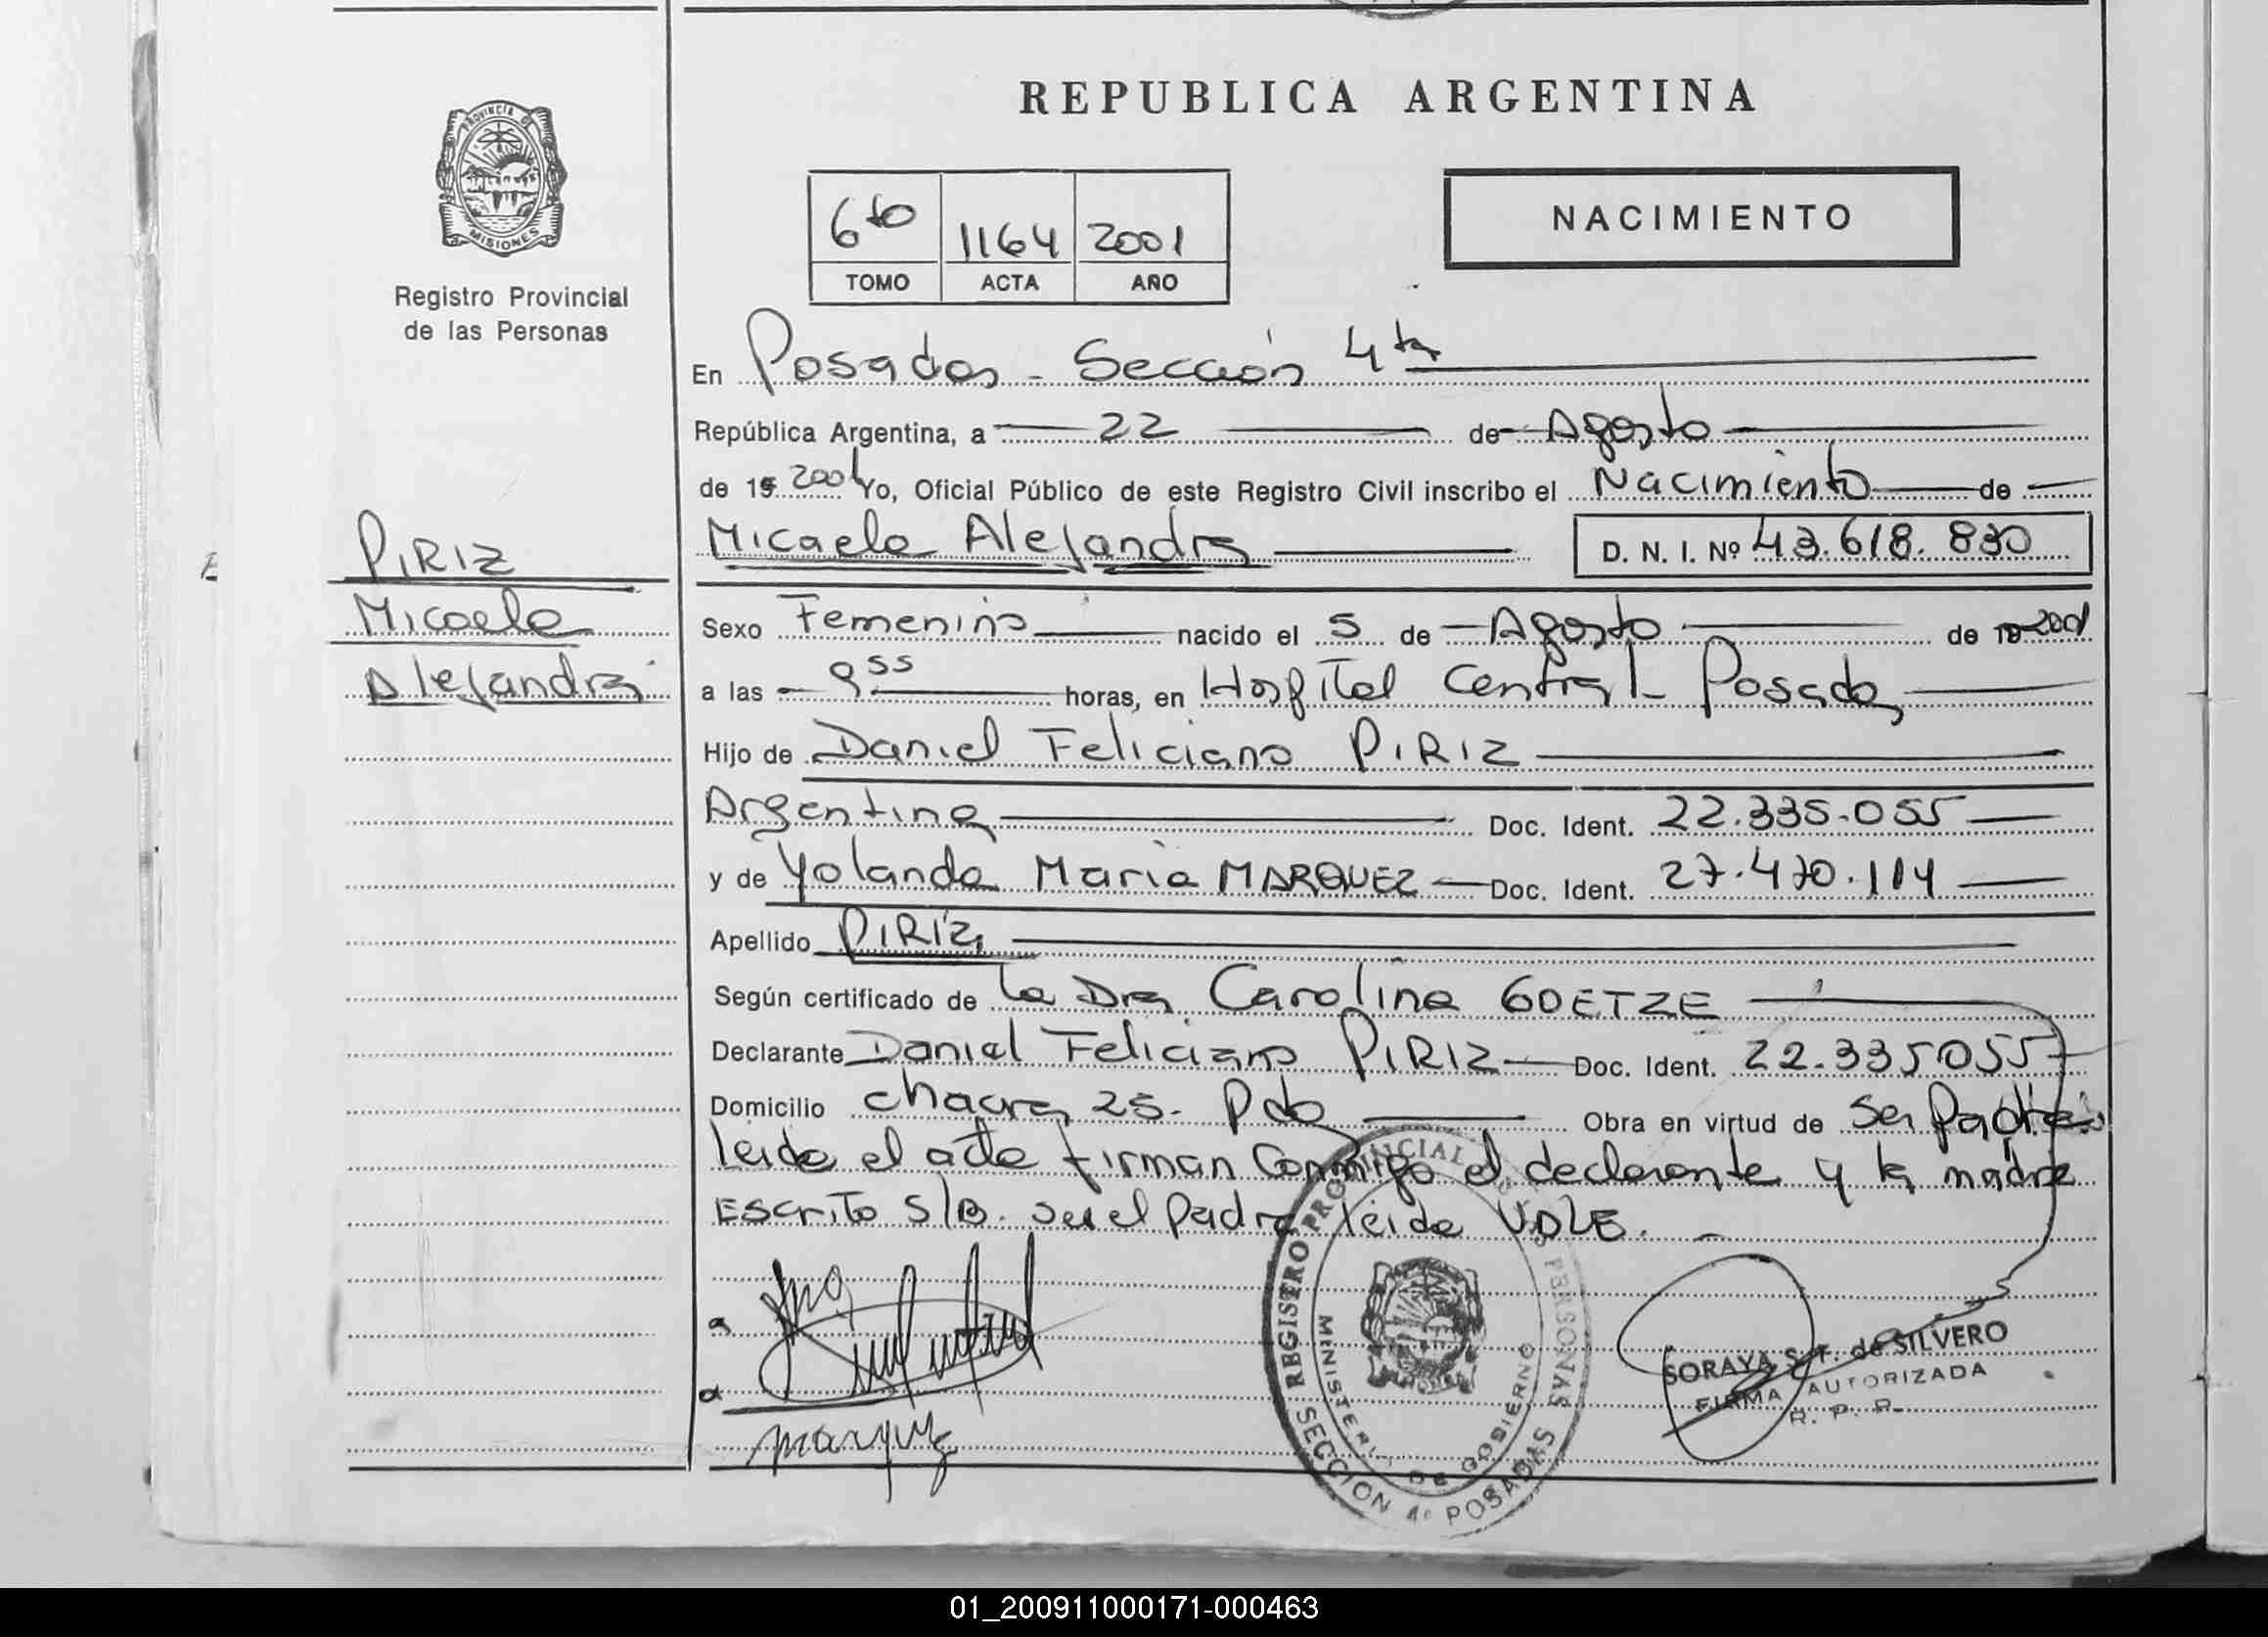 REPUBLICA ARGENTINA
PROVINCIA DE
MISIONES
Registro Provincial
de las Personas
6to 1164 2001
TOMO ACTA AÑO
NACIMIENTO
En Posadas - Sección 4ta
República Argentina, a 22 de Agosto
de 19 2001 Yo, Oficial Público de este Registro Civil inscribo el Nacimiento de
Micaela Alejandra D. N. I. Nº 43.618.830
PIRIZ
Micaela
Alejandra
Sexo Femenino nacido el 5 de Agosto de 19 2001
a las 9 55 horas, en Hospital Central - Posadas
Hijo de Daniel Feliciano PIRIZ
Argentina Doc. Ident. 22.335.055
y de Yolanda María MARQUEZ Doc. Ident. 27.470.114
Apellido PIRIZ
Según certificado de la Dra Carolina GOETZE
Declarante Daniel Feliciano PIRIZ Doc. Ident. 22.335055
Domicilio chacra 25. Pdas Obra en virtud de Ser Padre
leida el acta firman Conmigo el declarante y la madre
Escrito S/B. ser el padre leida VALE.
marquez
REGISTRO PROVINCIAL DE LAS PERSONAS
MINISTERIO DE GOBIERNO
SECCION 4ª POSADAS
SORAYA S. F. de SILVERO
FIRMA AUTORIZADA
R. P. P.
01_200911000171-000463